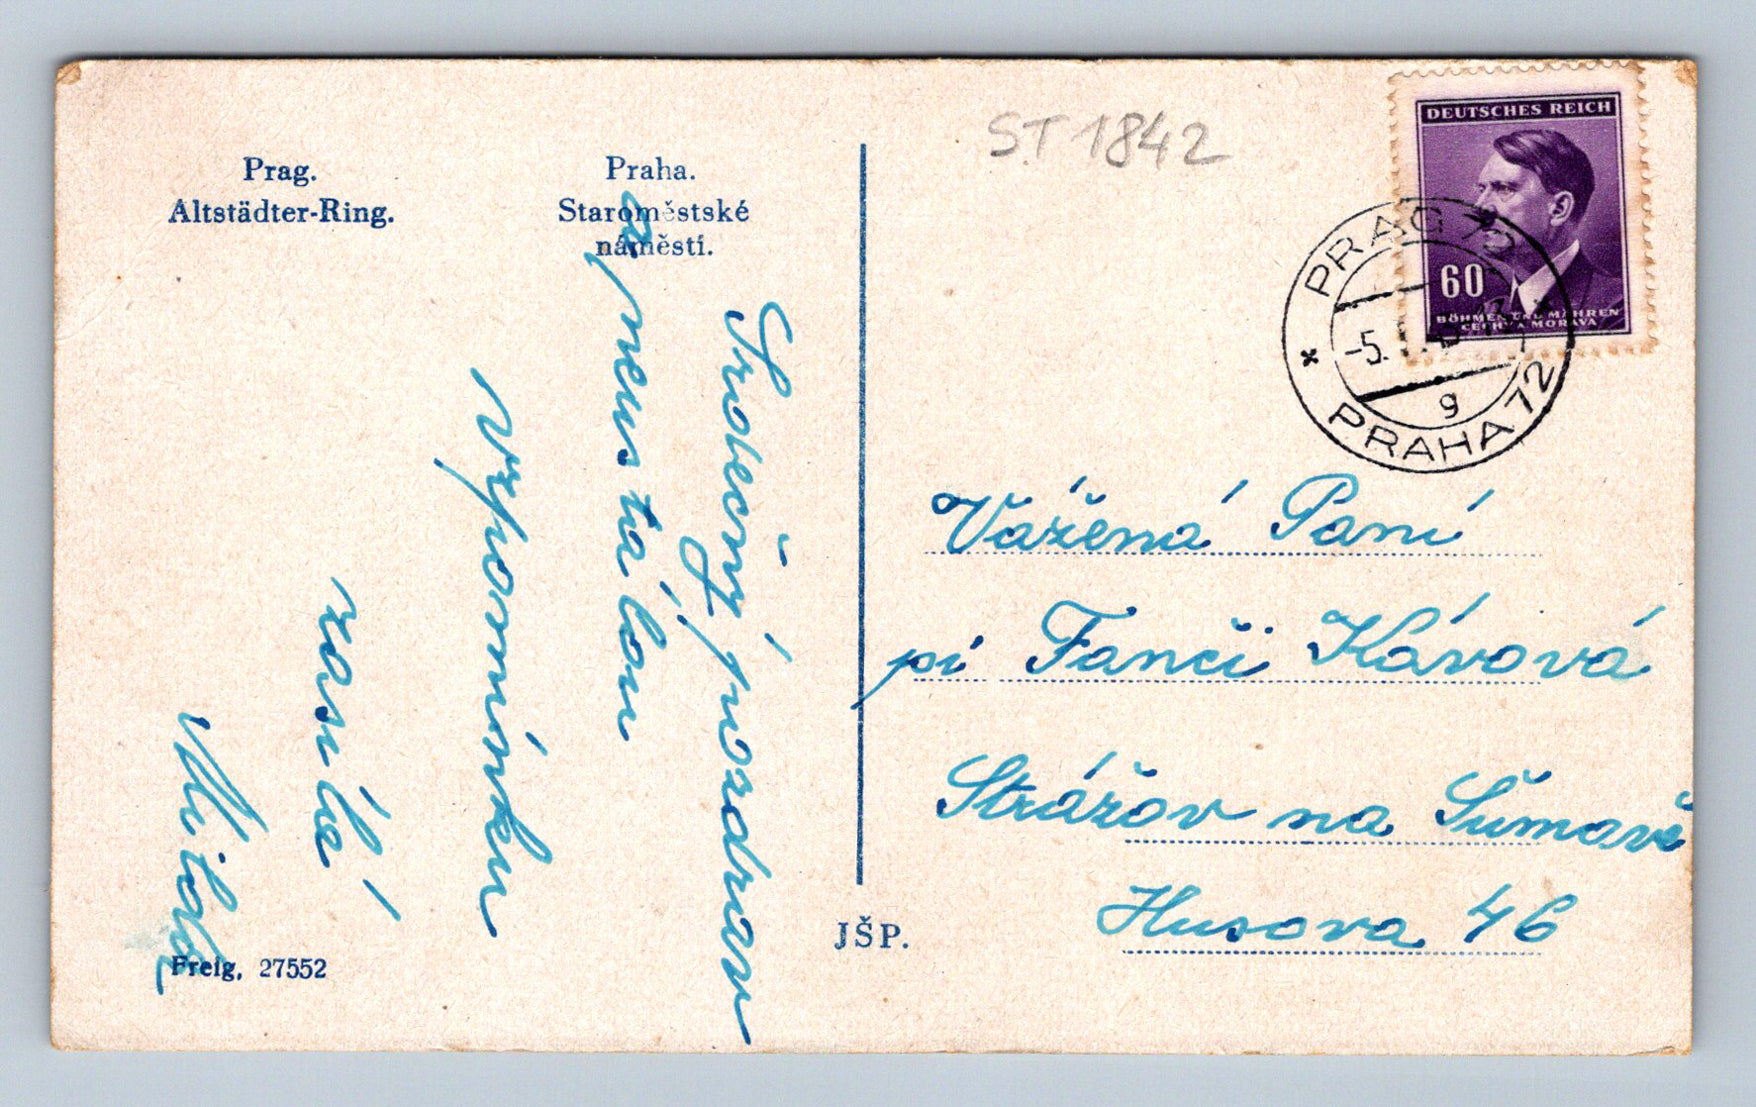 Prag.
Altstädter-Ring.
Praha.
Staroměstské
náměstí.
Srdečný pozdrav
a neustálou
vzpomínku
zasílá
Milda
Freig. 27552
JŠP.
ST 1842
DEUTSCHES REICH
60
BÖHMEN UND MÄHREN
ČECHY A MORAVA
PRAG 72
-5.
g
PRAHA 72
Vážená Paní
pí Fanči Kávová
Strážov na Šumavě
Husova 46